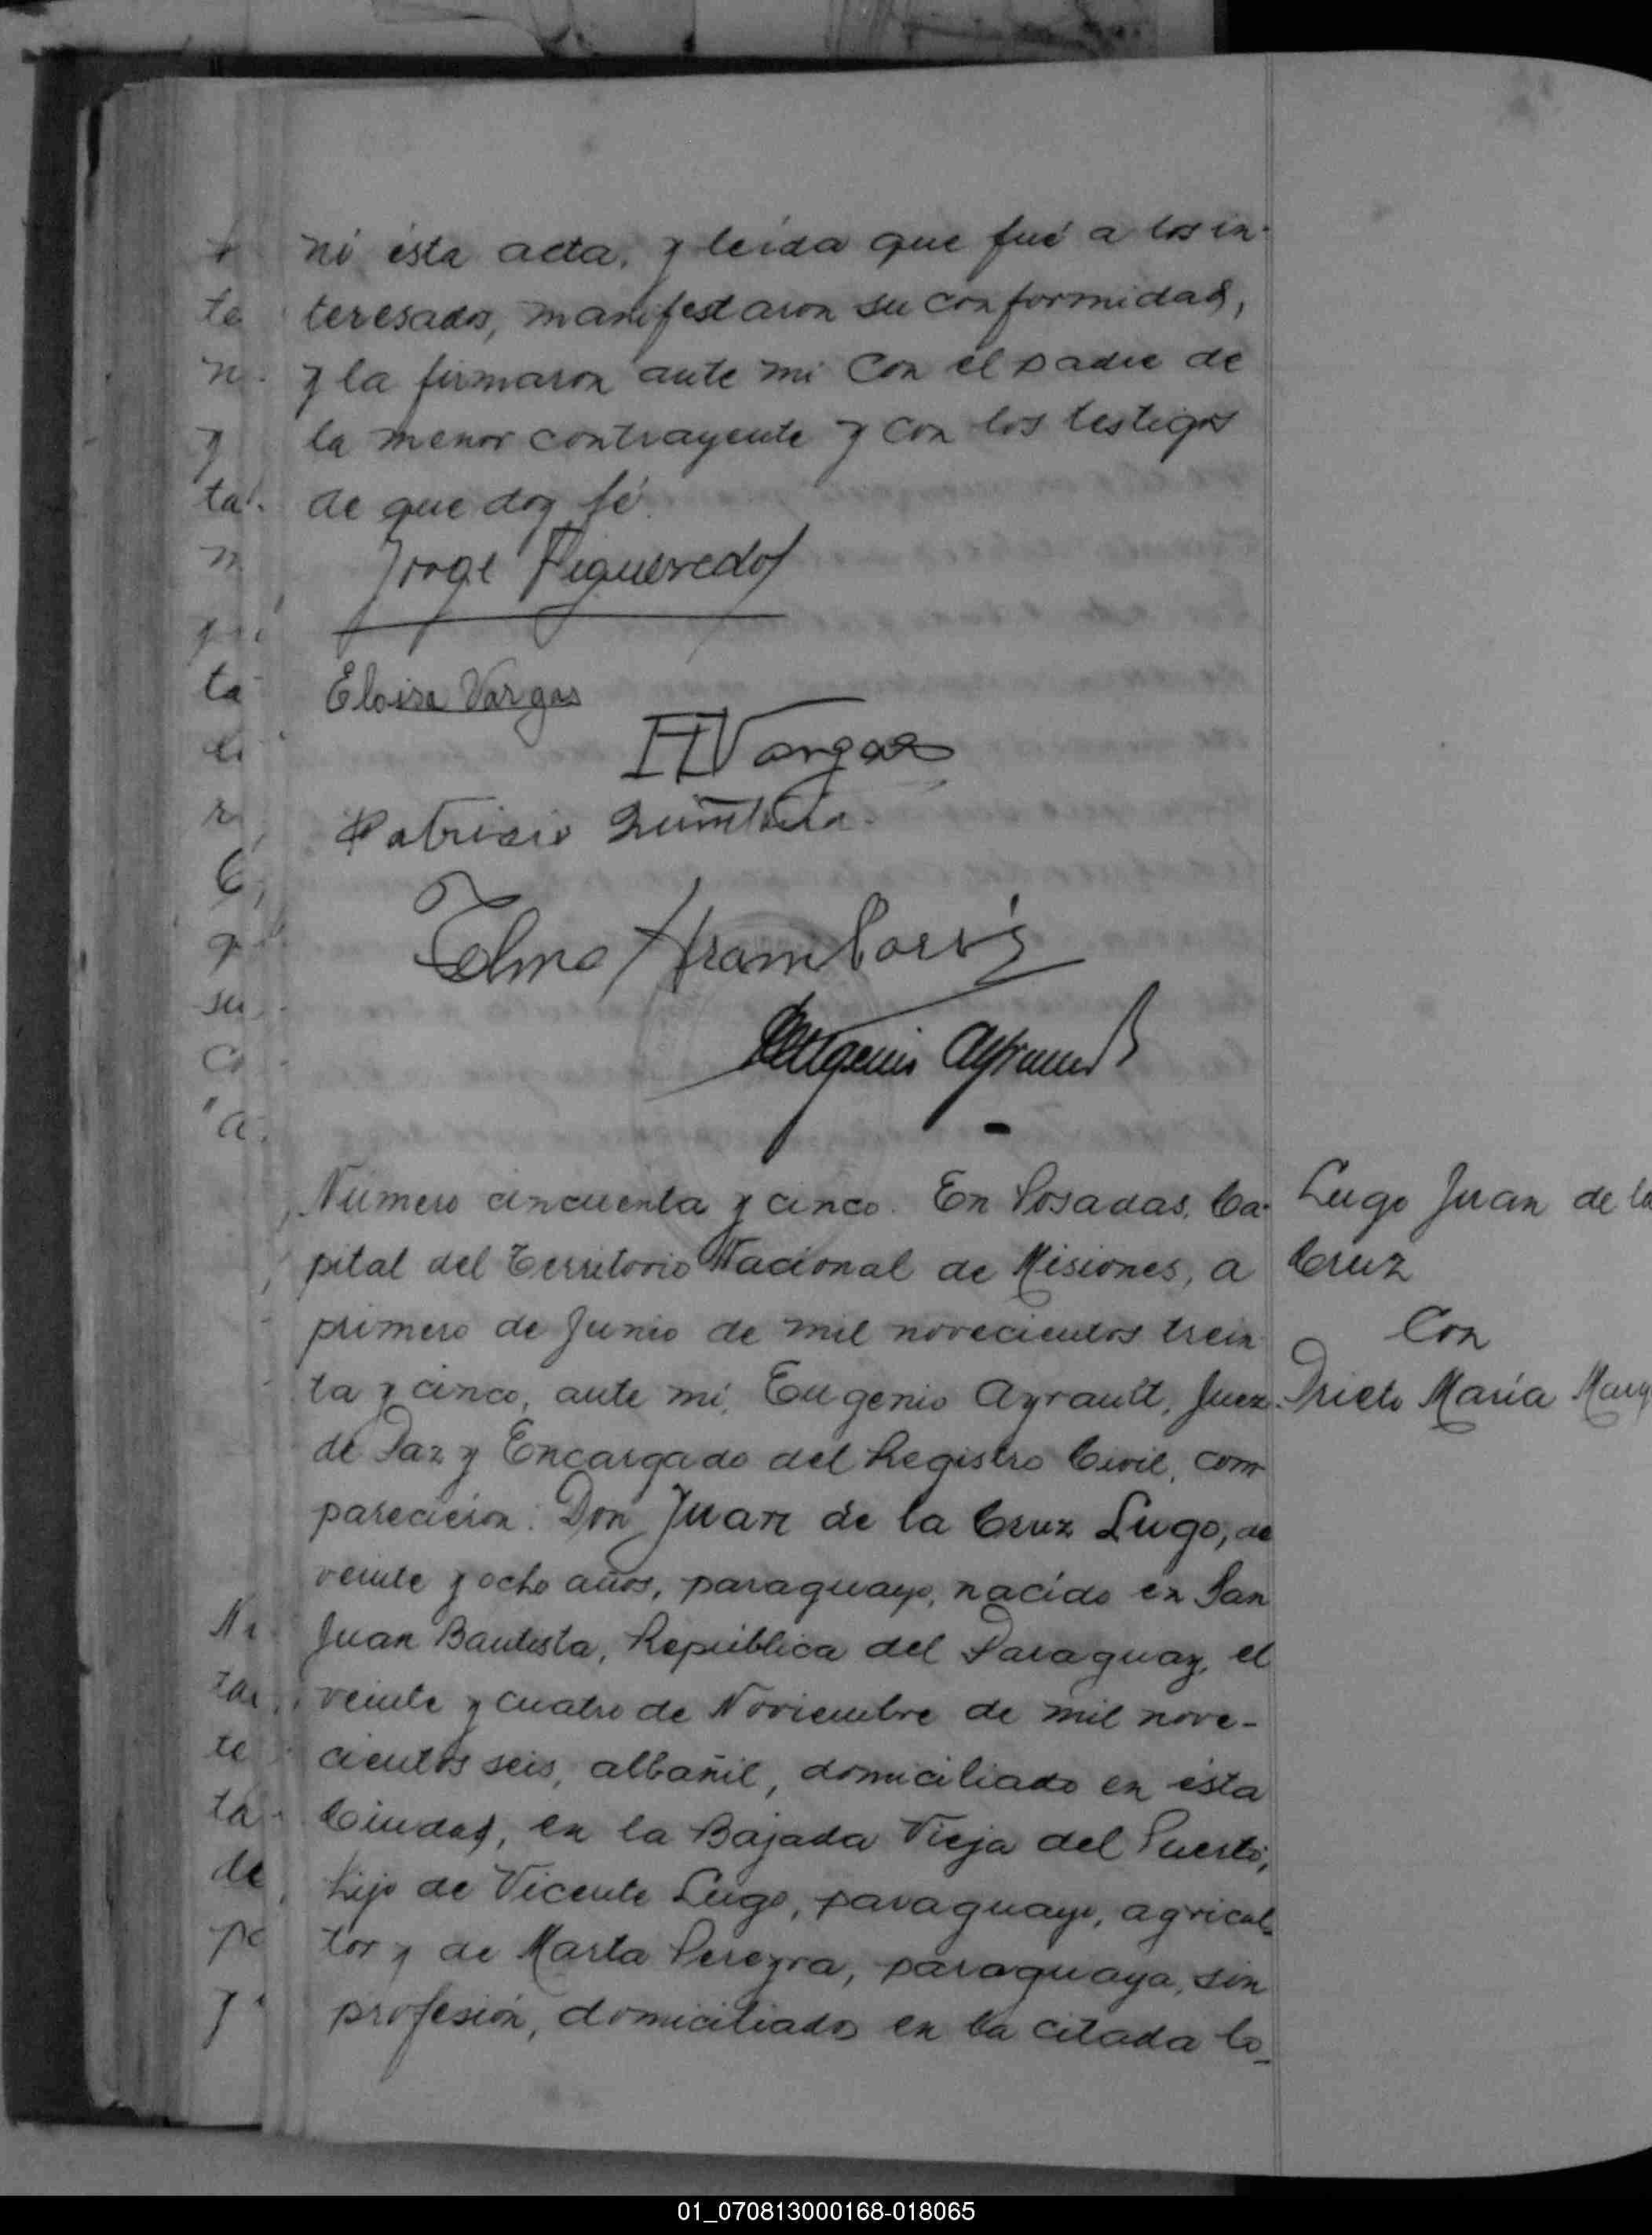 ní ésta acta, y leída que fué a los in-
teresados, manifestaron su conformidad,
y la firmaron ante mi con el padre de
la menor contrayente y con los testigos
de que doy fé.
Jorge Figueredo
Eloisa Vargas
H Vargas
Patricio
Telmo
Eugenio Ayrault
Número cincuenta y cinco. En Posadas, Ca-
pital del Territorio Nacional de Misiones, a
primero de Junio de mil novecientos trein
ta y cinco, ante mí, Eugenio Ayrault, Juez
de Paz y Encargado del Registro Civil, com
parecieron: Don Juan de la Cruz Lugo, de
veinte y ocho años, paraguayo, nacido en San
Juan Bautista, República del Paraguay, el
veinte y cuatro de Noviembre de mil nove-
cientos seis, albañil, domiciliado en ésta
Ciudad, en la Bajada Vieja del Puerto,
hijo de Vicente Lugo, paraguayo, agricul-
tor y de Marta Pereyra, paraguaya, sin
profesión, domiciliados en la citada lo-
Lugo Juan de la
Cruz
Con
Prieto María
te
n
y
ta
n
ta
r
su
"a
te
ta
de
y
01_070813000168-018065